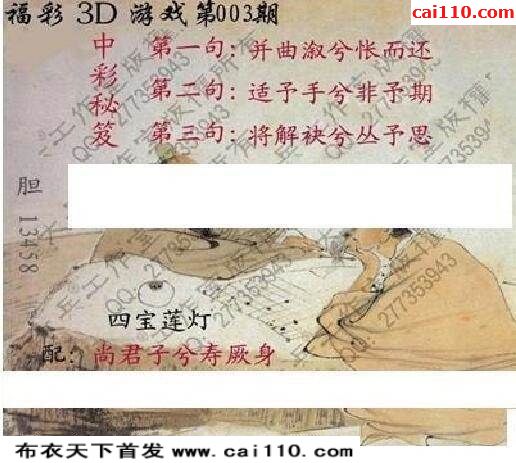 福彩 3D 游戏 第003期
cai110.com
中彩秘笈
第一句：并曲溆兮怅而还
第二句：适予手兮非予期
第三句：将解袂兮丛予思
胆 13458
四宝莲灯
配：尚君子兮寿厥身
布衣天下首发 www.cai110.com